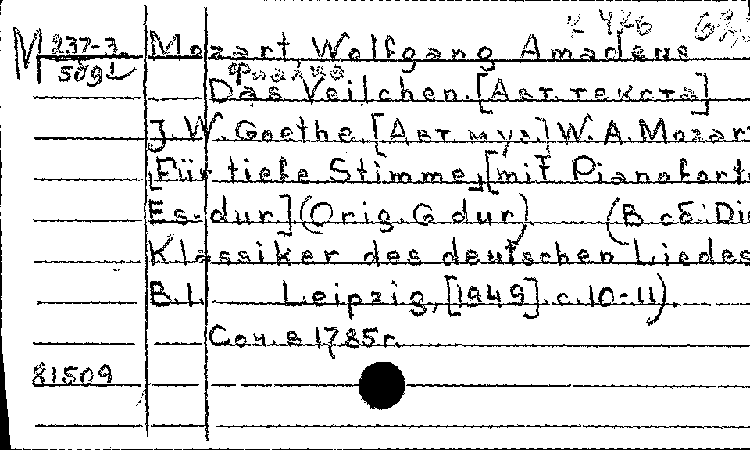 М 237-3 Mozart, Wolfgang Amadeus
509
Фиалка
Das Veilchen. [Авт. текста]
J. W. Goethe. [Авт. муз.] W. A. Mozar
[Für tiefe Stimme, [mit Pianofort
Es-dur] (Orig. G dur) (В сб: Di
Klassiker des deutschen Liedes
B. I. Leipzig, [1949]. с. 10-11).
Соч. в 1785 г.
81509